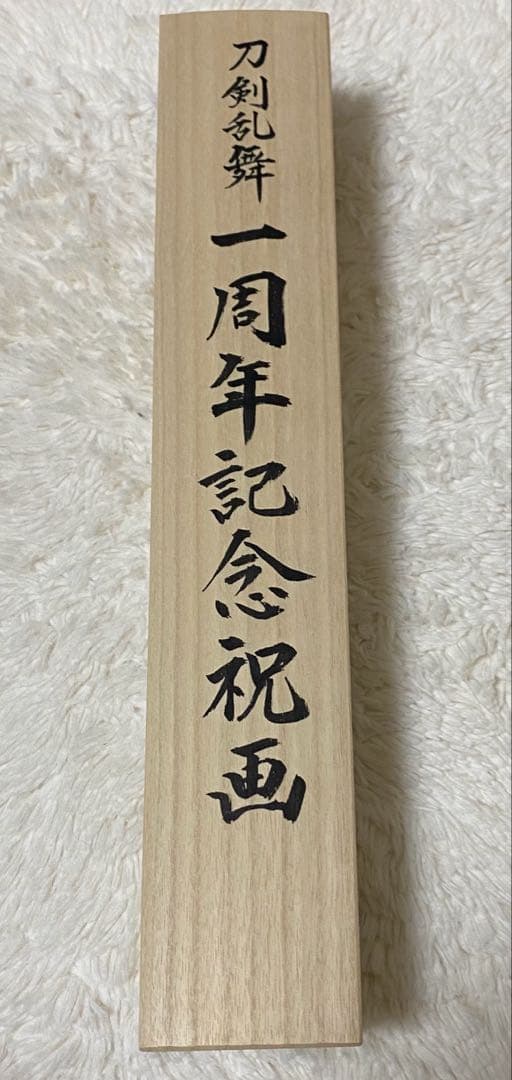 刀剣乱舞一周年記念祝画